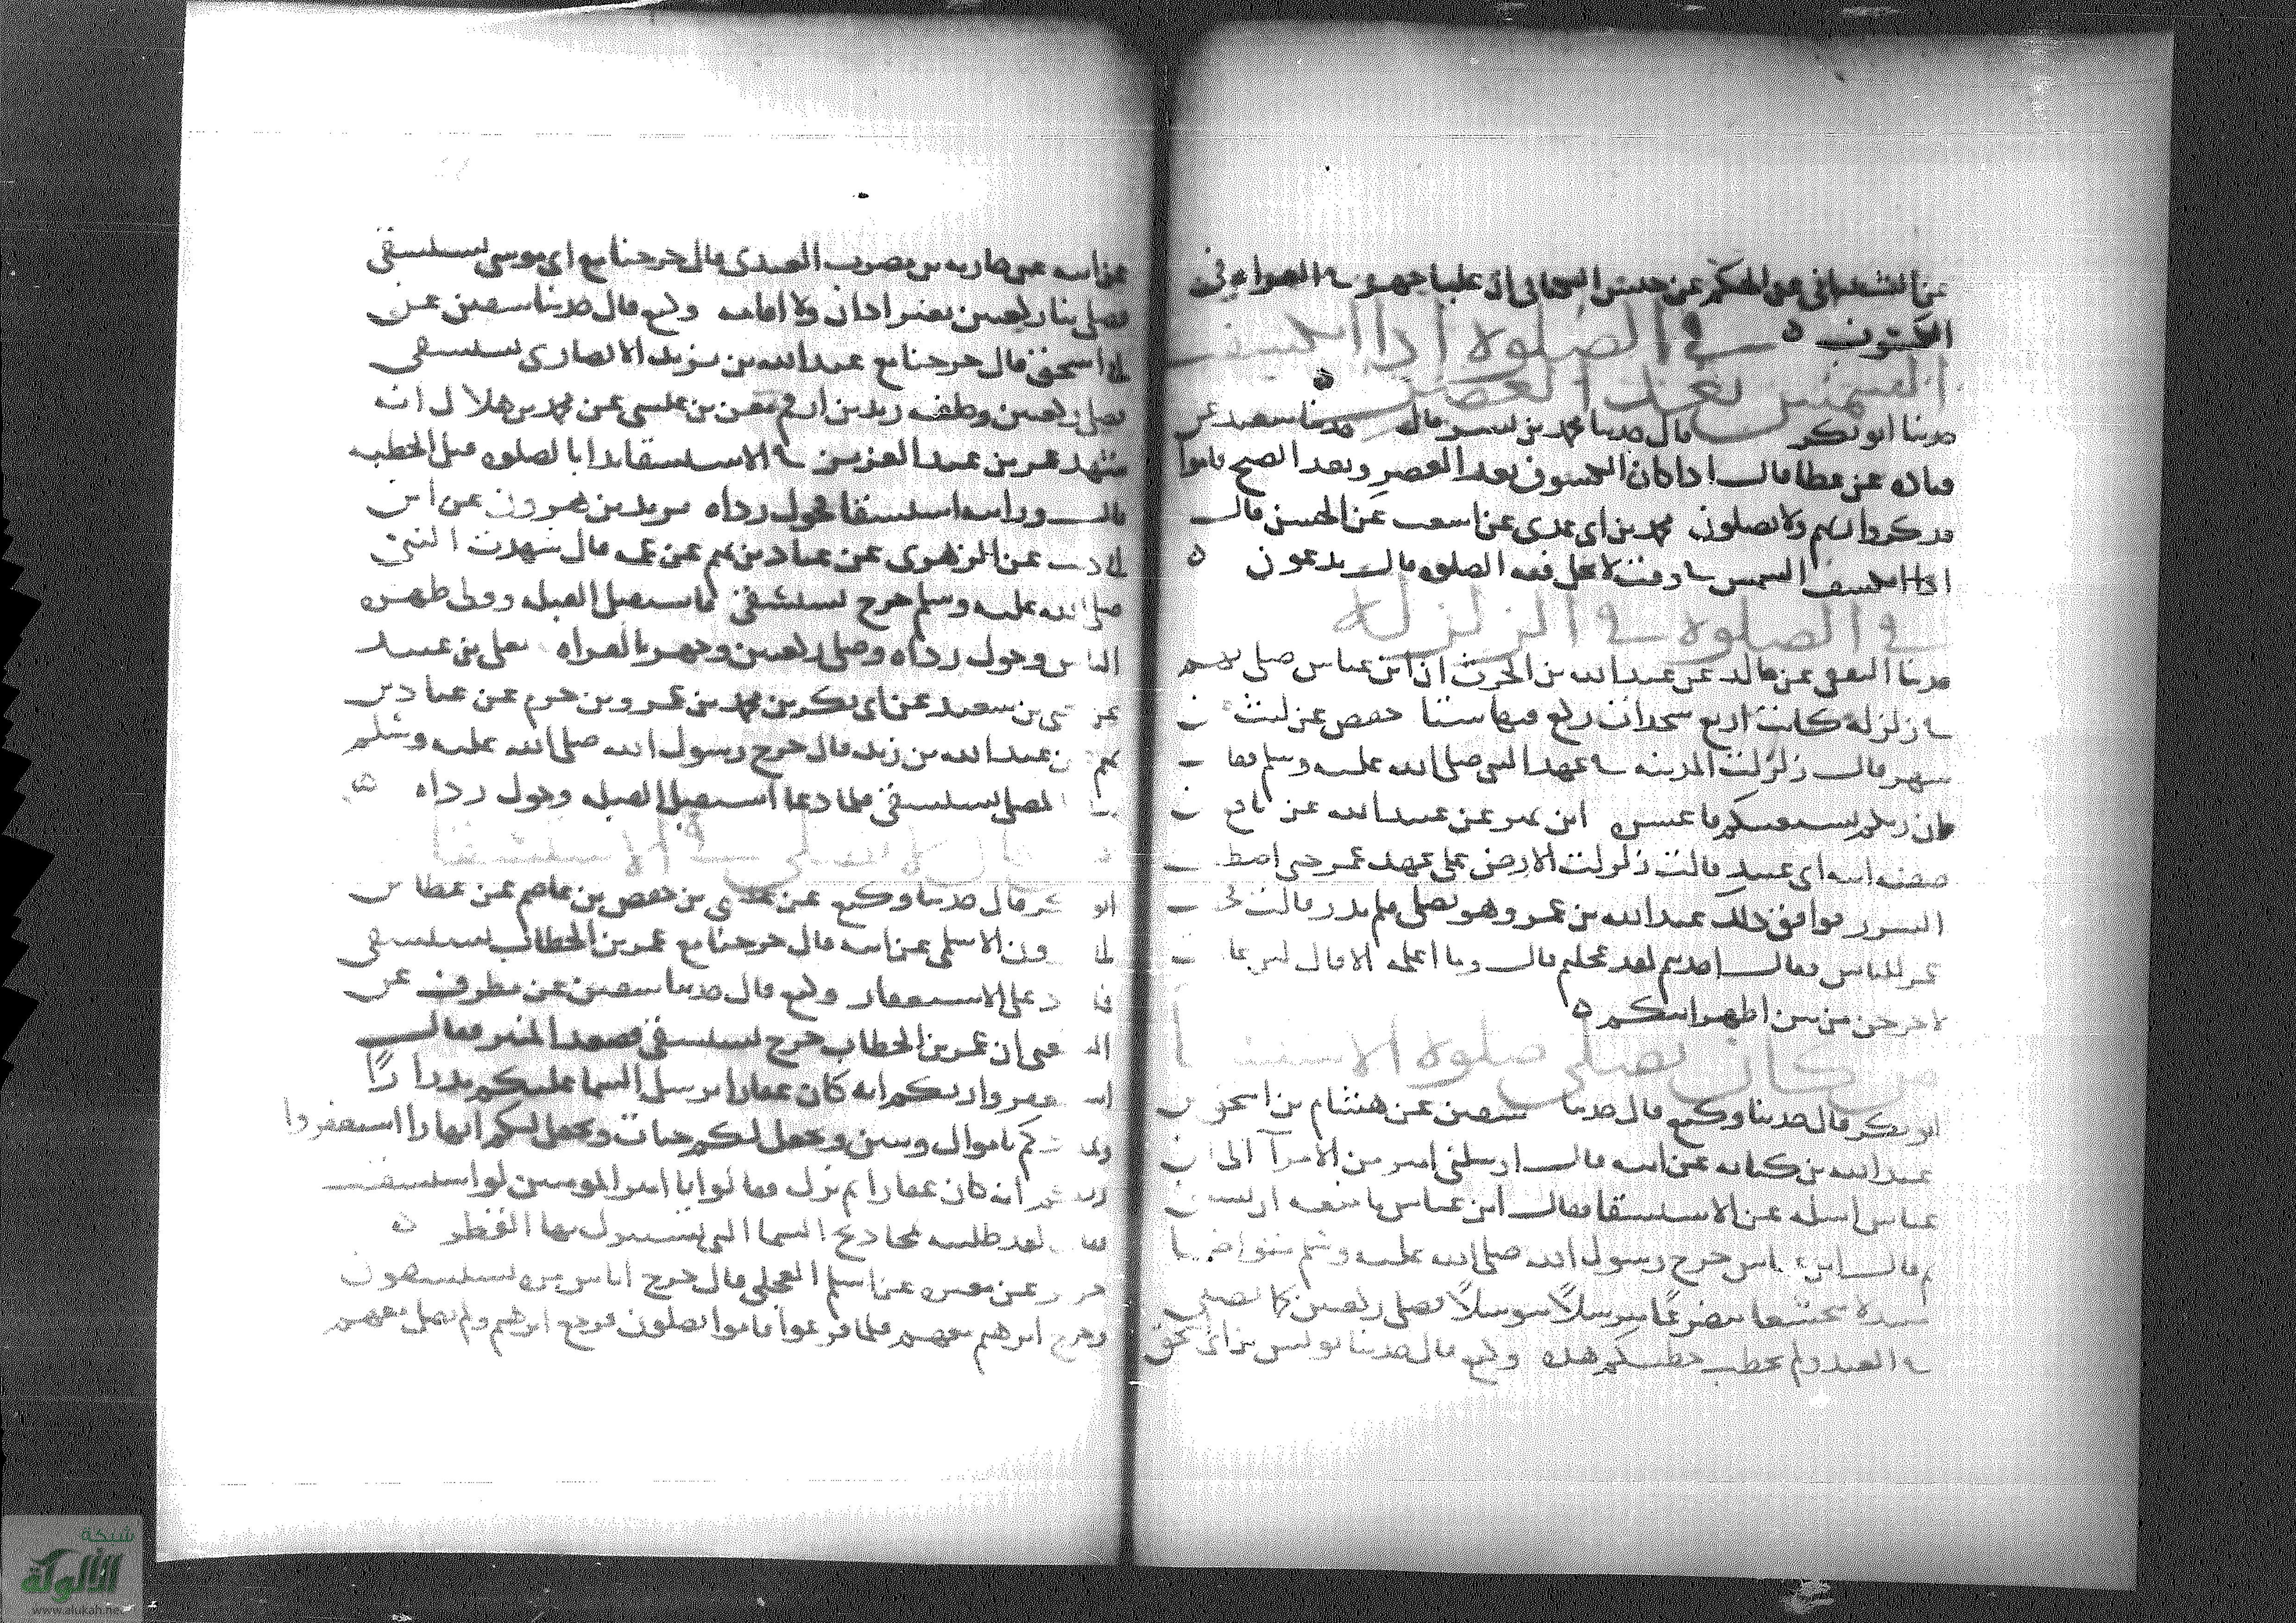 عن الشيباني عن الحكم عن حنش الكناني ان عليا جهر في القراءة في
الكسوف ه في الصلوة اذا انكسفت
الشمس بعد العصر ه
حدثنا ابو بكر قال حدثنا محمد بن بشر قال حدثنا سعيد عن
قتادة عن عطا قال اذا كان الكسوف بعد العصر وبعد الصبح قاموا
فذكروا ربهم ولا يصلون محمد بن ابي عدي عن اشعث عن الحسن قال
اذا انكسفت الشمس في وقت لا تحل فيه الصلوة قال يدعون ه
في الصلوة في الزلزلة
حدثنا الثقفي عن خالد عن عبد الله بن الحرث ان ابن عباس صلى بهم
في زلزلة كانت اربع سجدات ركع فيها ستا حفص عن ليث عن
شهر قال زلزلت المدينة في عهد النبي صلى الله عليه وسلم فقال
ان ربكم يستعتبكم فاعتبوه ابن نمير عن عبيد الله عن نافع عن
صفية ابنة ابي عبيد قالت زلزلت الارض على عهد عمر حتى اصطفقت
السرر فوافق ذلك عبد الله بن عمر وهو يصلي فلم يدر قالت فخطب
عمر للناس فقال احدثتم لقد عجلتم قال وما اعلمه الا قال لئن عادت
لاخرجن من بين اظهركم ه
من كان يصلي صلوة الاستسقا
ابو بكر قال حدثنا وكيع قال حدثنا سفين عن هشام بن اسحق بن
عبد الله بن كنانة عن ابيه قال ارسلني امير من الامرآ الى ابن
عباس اسله عن الاستسقا فقال ابن عباس ما منعه ان يسلني
ثم قال ابن عباس خرج رسول الله صلى الله عليه وسلم متواضعا
متبذلا متخشعا متضرعا مترسلا فصلى ركعتين كما يصلي
في العيد ولم يخطب خطبتكم هذه وكيع قال حدثنا يونس بن ابي اسحق
عن ابيه عن حارثة بن مضرب العبدي قال خرجنا مع ابي موسى نستسقي
فصلى بنا ركعتين بغير اذان ولا اقامة وكيع قال حدثنا سفين عن
ابي اسحق قال خرجنا مع عبد الله بن يزيد الانصاري نستسقي
فصلى ركعتين وخلفه زيد بن ارقم معن بن عيسى عن محمد بن هلال انه
شهد عمر بن عبد العزيز في الاستسقا بدا بالصلوة قبل الخطبة
قال ورايته استسقا فحول رداه يزيد بن هرون عن ابن
ابي ذئب عن الزهري عن عباد بن تميم عن عمه قال شهدت النبي
صلى الله عليه وسلم خرج يستسقي فاستقبل القبلة وولى ظهره
الناس وحول رداه وصلى ركعتين وجهر بالقراه يعلى بن عبيد
عن يحيى بن سعيد عن ابي بكر بن محمد بن عمرو بن حزم عن عباد بن
تميم عن عبد الله بن زيد قال خرج رسول الله صلى الله عليه وسلم
الى المصلى يستسقي فلما دعا استقبل القبلة وحول رداه ه
من قال لا يصلي في الاستسقا
ابو بكر قال حدثنا وكيع عن عيسى بن حفص بن عاصم عن عطا بن
ابي مرون الاسلمي عن ابيه قال خرجنا مع عمر بن الخطاب يستسقي
فما زاد على الاستغفار وكيع قال حدثنا سفين عن مطرف عن
الشعبي ان عمر بن الخطاب خرج يستسقي فصعد المنبر فقال
استغفروا ربكم انه كان غفارا يرسل السما عليكم مدرارا
ويمددكم باموال وبنين ويجعل لكم جنات ويجعل لكم انهارا استغفروا
ربكم انه كان غفارا ثم نزل فقالوا يا امير المومنين لو استسقيت
فقال لقد طلبته بمجاديح السما التي يستنزل بها القطر ه
جرير عن مغيرة عن اسلم العجلي قال خرج اناس مرة يستسقون
وخرج ابرهيم معهم فلما فرغوا قاموا يصلون فرجع ابرهيم ولم يصل معهم
شبكة
الألوكة
www.alukah.net